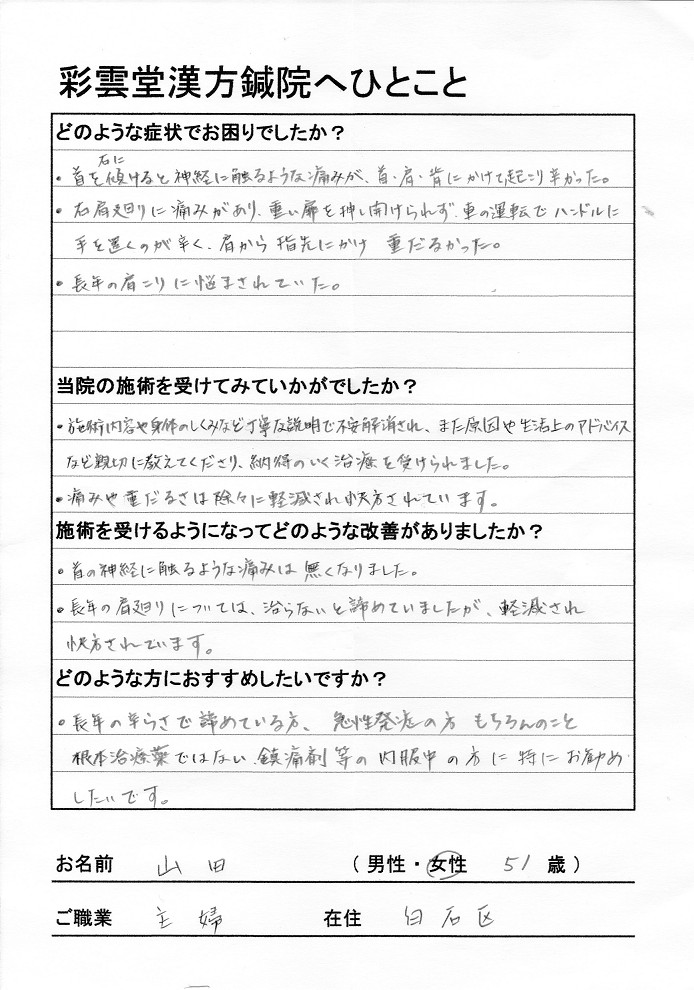 彩雲堂漢方鍼院へひとこと
どのような症状でお困りでしたか？
・首を右に傾けると神経に触るような痛みが、首・肩・背にかけて起こり辛かった。
・右肩廻りに痛みがあり、重い扉を押し開けられず、車の運転でハンドルに
手を置くのが辛く、肩から指先にかけ 重だるかった。
・長年の肩こりに悩まされていた。
当院の施術を受けてみていかがでしたか？
・施術内容や身体のしくみなど丁寧な説明で不安解消され、また原因や生活上のアドバイス
など親切に教えてくださり、納得のいく治療を受けられました。
・痛みや重だるさは除々に軽減され快方されています。
施術を受けるようになってどのような改善がありましたか？
・首の神経に触るような痛みは無くなりました。
・長年の肩廻りについては、治らないと諦めていましたが、軽減され
快方されています。
どのような方におすすめしたいですか？
・長年の辛らさで諦めている方、急性発症の方 もちろんのこと
根本治療薬ではない、鎮痛剤等の内服中の方に特にお勧め
したいです。
お名前 山田 （男性・女性 51 歳）
ご職業 主婦 在住 白石区